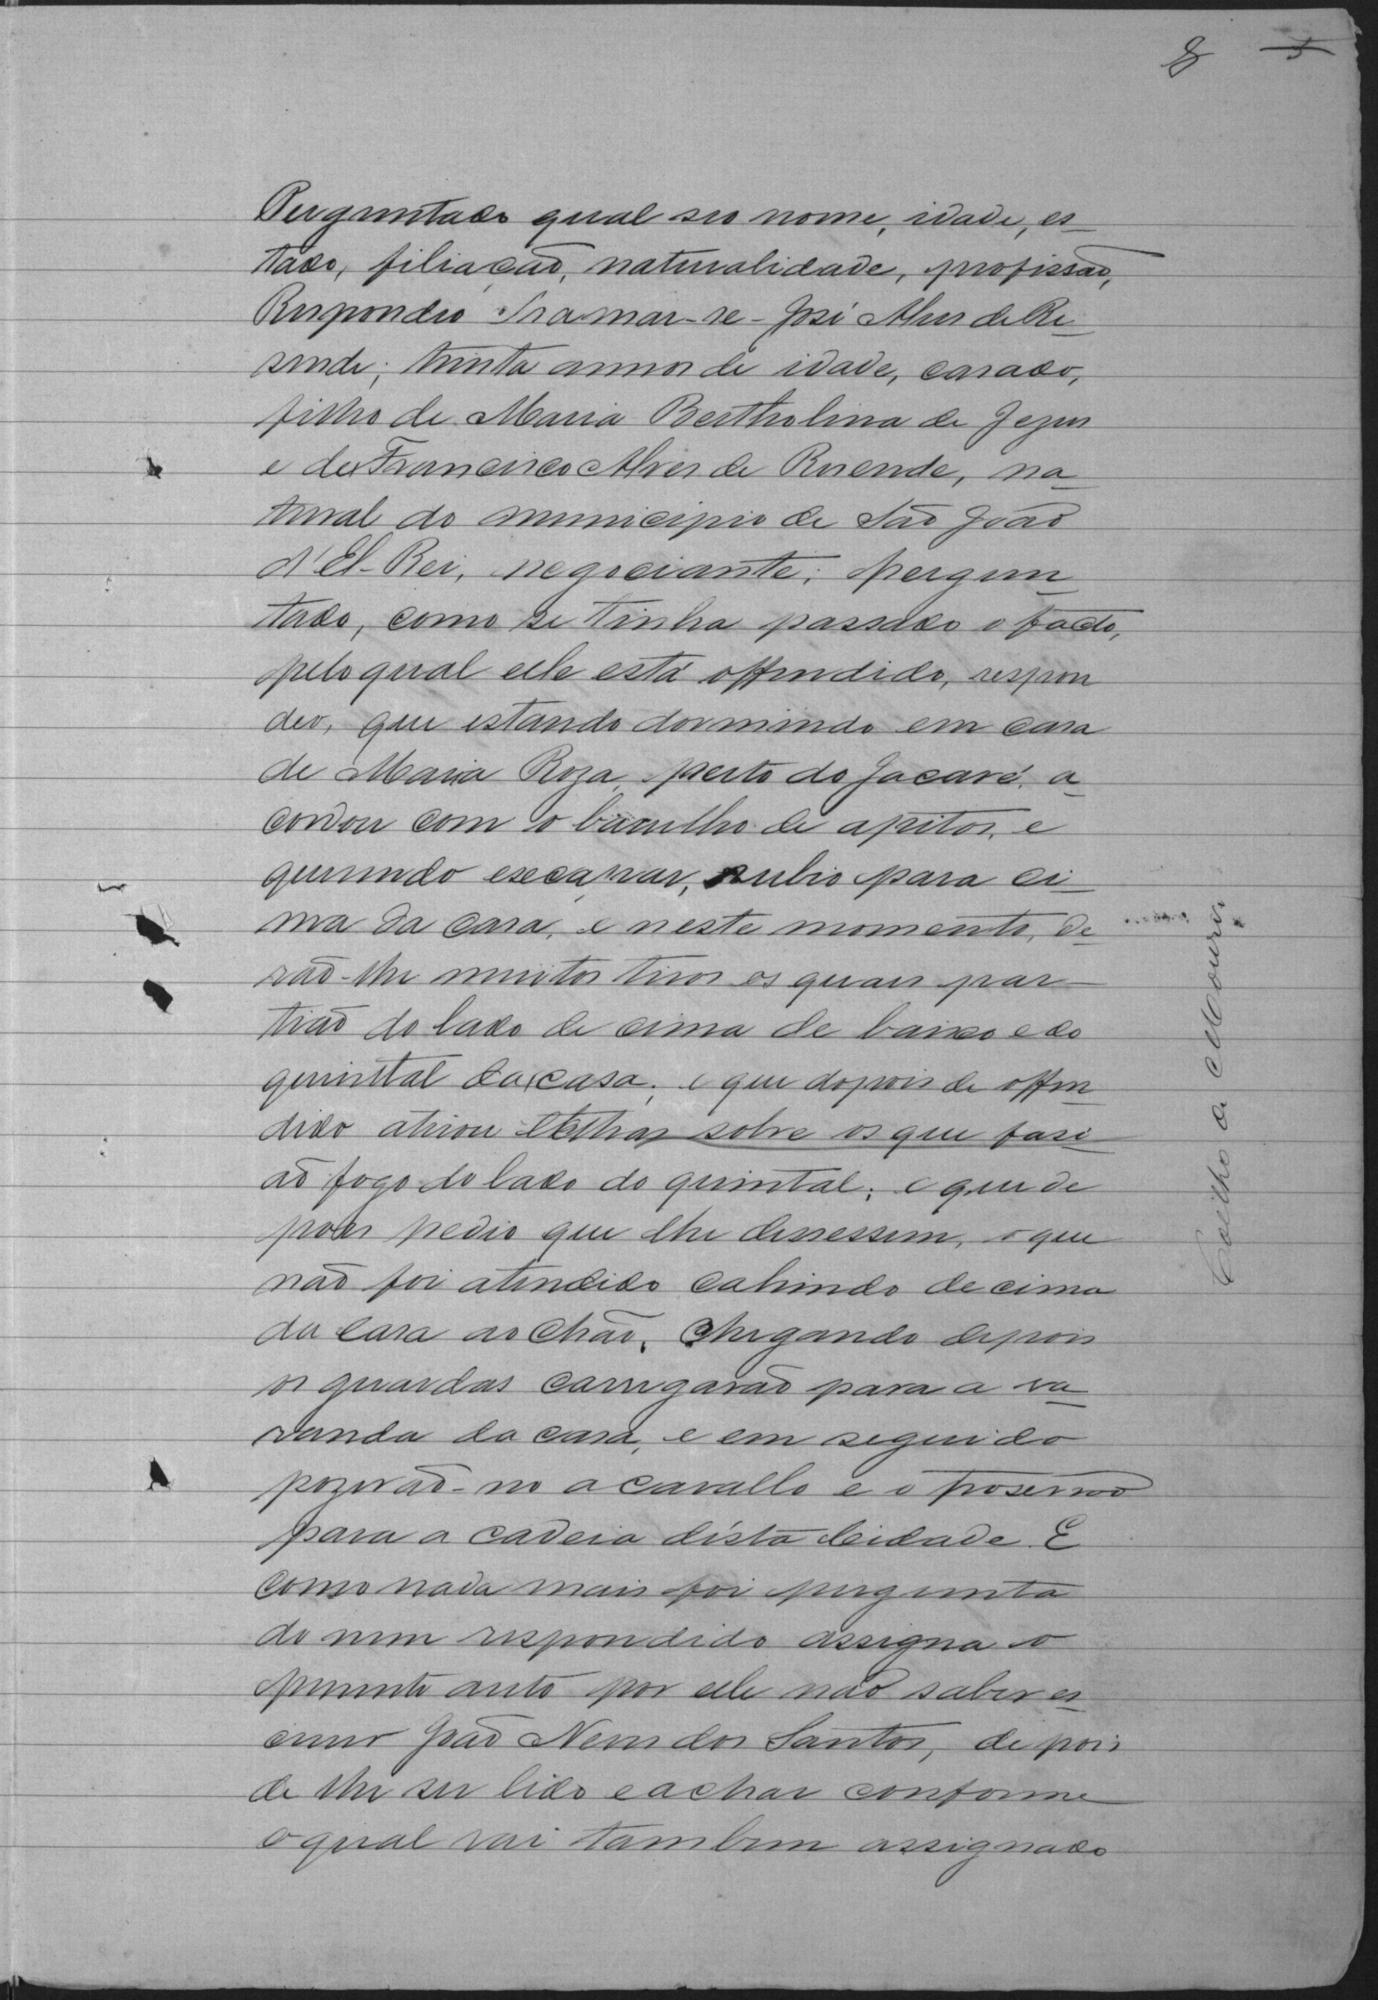 8 5
Perguntado qual seo nome, idade, es
tado, filiação, naturalidade, profissão,
Respondeo xamar-se-José Alves de Re
sende; trinta annos de idade, casado,
filho de Maria Bertholina de Jezus
e de Francisco Alves de Resende, na
tural do municipio de São João
d'El-Rei, negociante; pergun
tado, como se tinha passado o facto,
pelo qual elle está offendido, respon
deo, que estando dormindo em casa
de Maria Roza, perto do Jacaré, a
cordou com o barulho de apitos, e
querendo escapar, subio para ci
ma da casa, e neste momento, de
rão-lhe muitos tiros os quais par
tirão do lado de cima de baixo e do
quintal da casa; e que dopois de offen
dido atirou telhas sobre os que fasi
ão fogo do lado do quintal; e que de
pois pedio que lhe dessessem, o que
não foi atendido cahindo de cima
da casa ao chão. Chegando depois
os guardas carregarão para a va
randa da casa, e em seguido
pozerão-no a cavallo e o troserão
para a cadeia désta Cidade. E
como nada mais foi pergunta
do nem respondido assigna o
presente auto por elle não saber es
crever João Neves dos Santos, depois
de lhe ser lido e achar conforme
o qual vai tambem assignado
Coelho a Moura